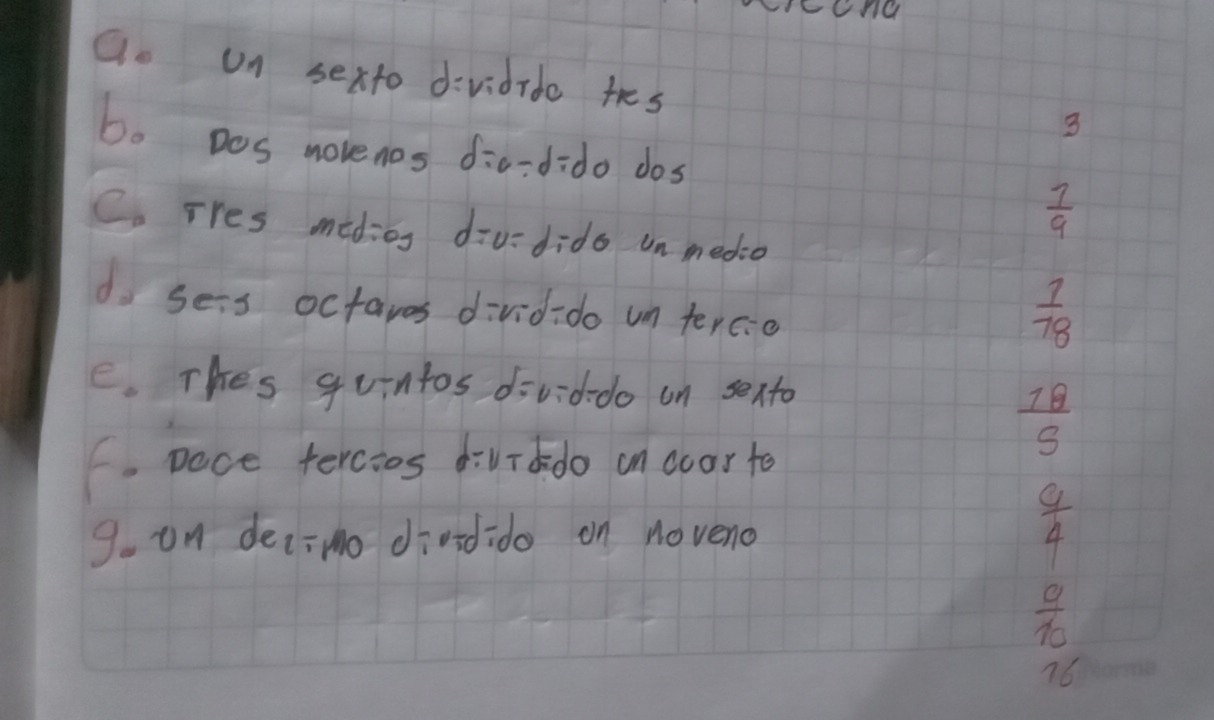 a. un sexto dividido tres
3
b. Dos novenos dividido dos
1/9
c. Tres medios dividido un medio
d. seis octavos dividido un tercio
1/18
e. Tres quintos dividido un sexto
18/5
f. Doce tercios dividido un cuarto
9/4
g. un decimo dividido un noveno
9/10
16
Norma